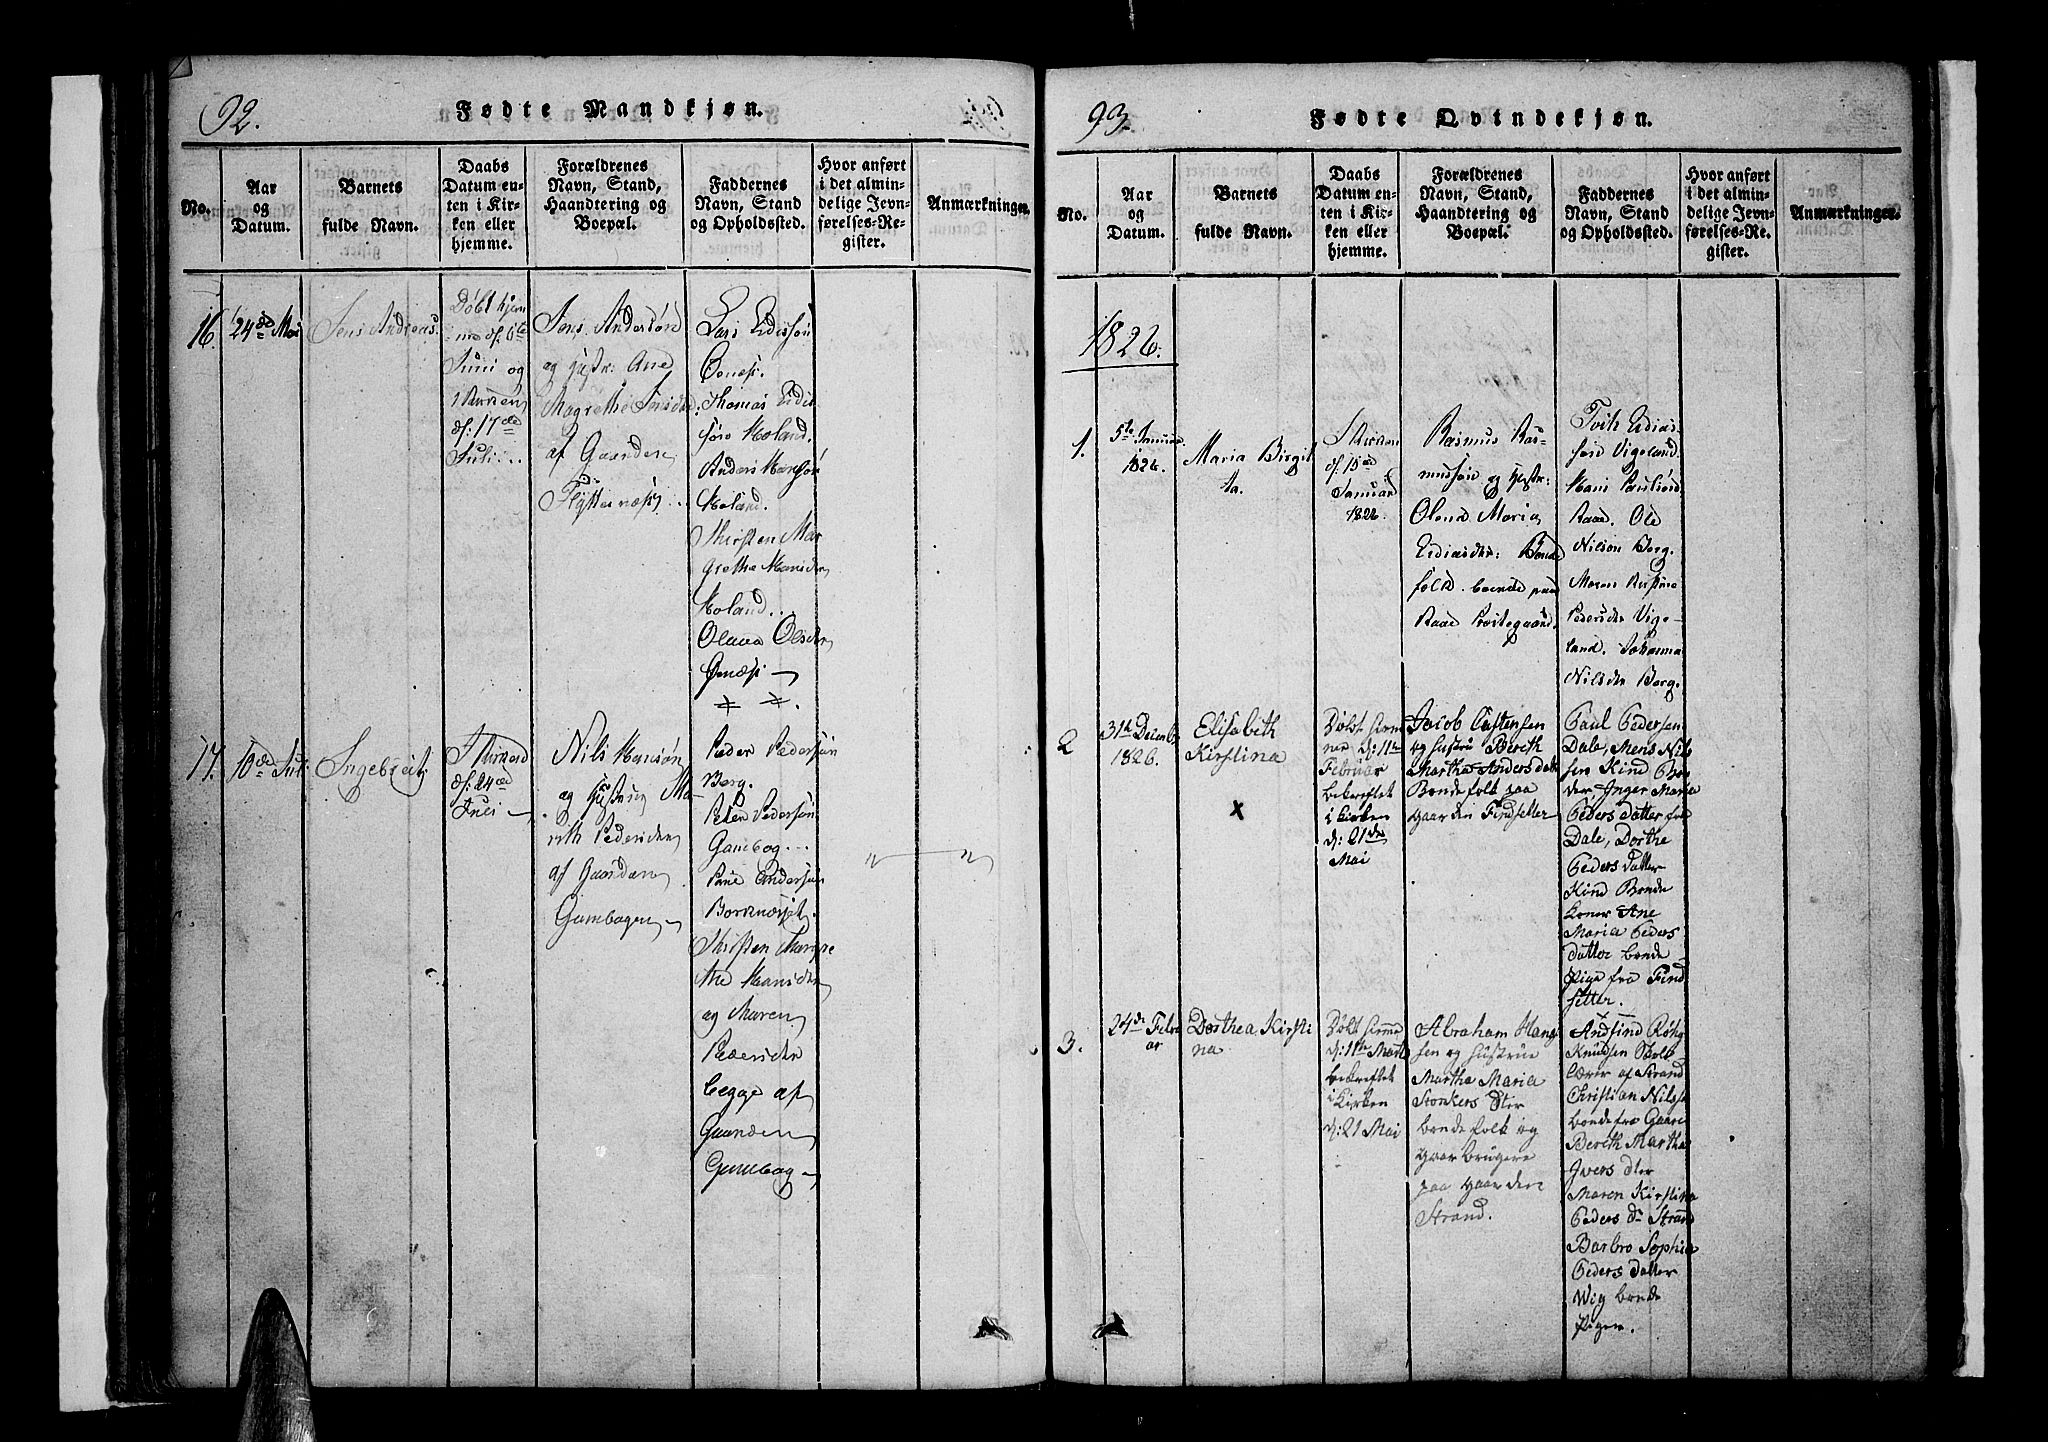 92.
Fødte Mandkjøn.
No.
Aar
og
Datum.
Barnets
fulde Navn.
Daabs
Datum en-
ten i Kir-
ken eller
hjemme.
Forældrenes
Navn, Stand,
Haandtering og
Boepæl.
Faddernes
Navn, Stand
og Opholdssted.
Hvor anført
i det almin-
delige Jevn-
førelses-Re-
gister.
Anmærkninger.
16.
24de Mai
Jens Andreas.
Døbt hjem
me d: 6te
Juni og
i Kirken
d: 17de
Juli
Jens Andersøn
og hustr: Ane
Magrethe Jensder
af Gaarden
Flyttenæs
Lars
Thomas
Holand.
Anders Hansøn
Holand.
Kirsten Mar
grethe Hansder
Holand..
Olava Olsder
17.
10de Juli
Ingebreit
I Kirken
d: 24de
Juli
Nils Hansøn
og Hustrue Ma-
rith Pedersder
af Gaarden
Gambogen
Peder Pedersøn
Berg.
Peter Pedersøn
Gambog
Andersøn
Kirsten Margre
the Hansder
og Maren
Pedersder
begge af
Gaarden
Gambog
93.
Fødte Qvindekjøn.
No.
Aar
og
Datum.
Barnets
fulde Navn.
Daabs
Datum en-
ten i Kir-
ken eller
hjemme.
Forældrenes
Navn, Stand,
Haandtering og
Boepæl.
Faddernes
Navn, Stand
og Opholdssted.
Hvor anført
i det almin-
delige Jevn-
førelses-Re-
gister.
Anmærkninger.
1826.
1.
5te Januar
1826.
Maria Birgit
ta.
I Kirken
d: 15de
Januar
1826.
Rasmus Ras-
musøn og hustr:
Olena Maria
Erdiasder: Bønde
folk boende paa
Raae Præstegaard.
Erdias-
søn Vigeland.
Hans Paulsøn
Raae. Ole
Nilsøn Berg.
Maren Kirstina
Pedersder Vige-
land. Johanna
Nilsder Berg.
2
31te Decembr
1826.
Elisabeth
Kirstina
x
Døbt hiem
me d: 11te
Februar
bekreftet
i kirken
d: 21de
Mai
Jacob Castensen
og hustrue Berith
Martha Andersdatter
Bøndefolk paa
gaarden Findsetter
Paul Pedersen
Dale, Mens Nil
sen Kind Bøn
der Inger Maria
Peders datter fra
Dale, Dorthe
Peders datter
Kind Bønde
koner Ane
Maria Peders
datter bonde
Pige fra Find
setter.
3.
24de Febru
ar
Dorthea Kirsti
na
Døbt hiemme
d: 11te Marts
bekreftet
i kirken
d: 21 Mai
Abraham Hans
sen og hustrue
Martha Maria
Stonkers dter
bønde folk og
gaar brugere
paa gaarden
Strand.
Andfind Røhg
Knudsen Skole
lærer af Strand
Christian Nilss
bonde fra Gaare
Berith Martha
Ivers dter
Maren Kirstina
Peders dr Strand
Barbro Sophia
Peders datter
Wig bonde
Piger.